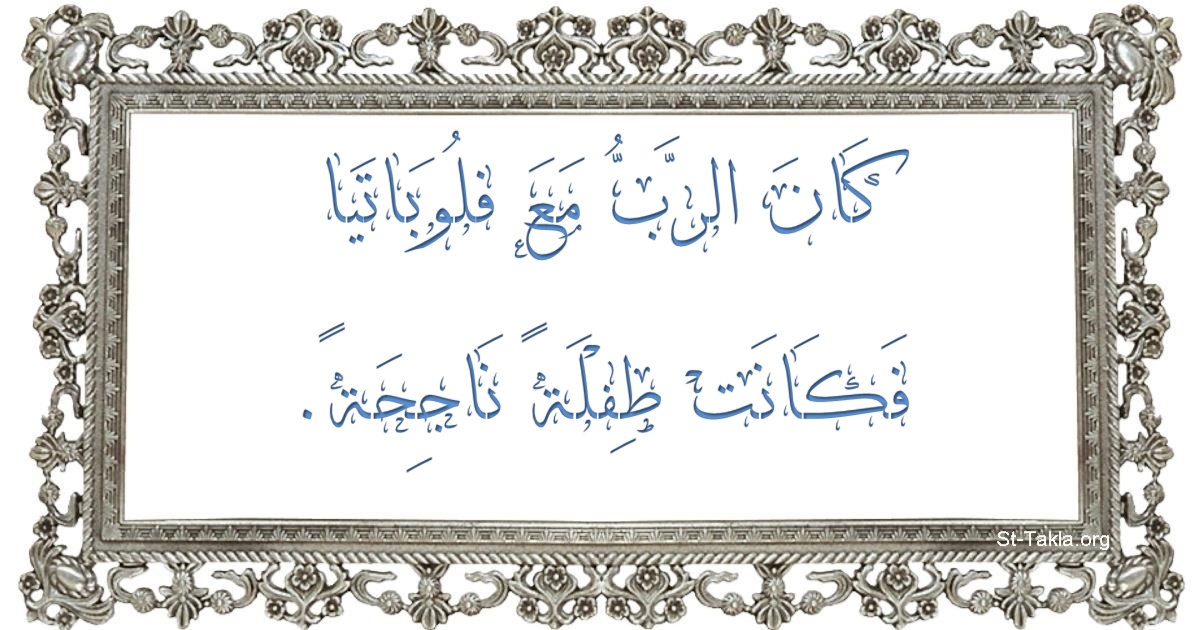 كَانَ الرَّبُّ مَعَ فلُوبَاتَيَا
فَكَانَتْ طِفِلْةَةً نَاجِحَةً.
St-Takla.org